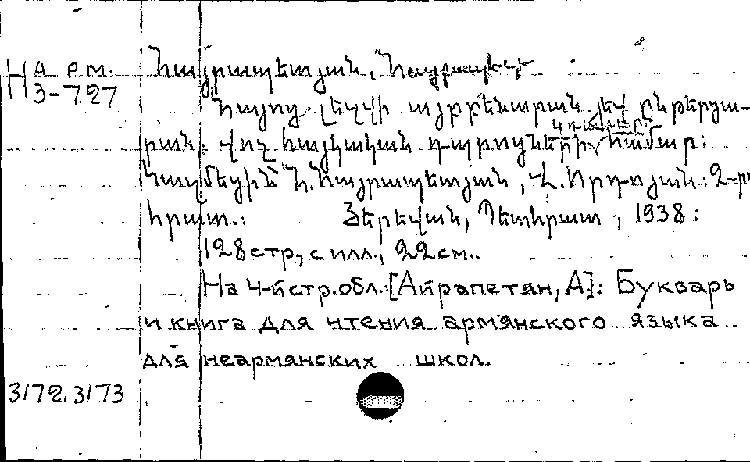 На арм.
З-727
Հայրապետյան, Հայրապետ
Հայոց լեզվի այբբենարան յեվ ընթերցա-
րան. վոչ հայկական դպրոցների համար:
Կազմեցին Հ. Հայրապետյան, Հ. 2-րդ
հրատ.: Յերեվան, Պետհրատ, 1938:
128 стр., с илл., 22 см..
На 4-й стр. обл. [Айрапетян, А]: Букварь
и книга для чтения армянского языка
для неармянских школ.
3172.3173